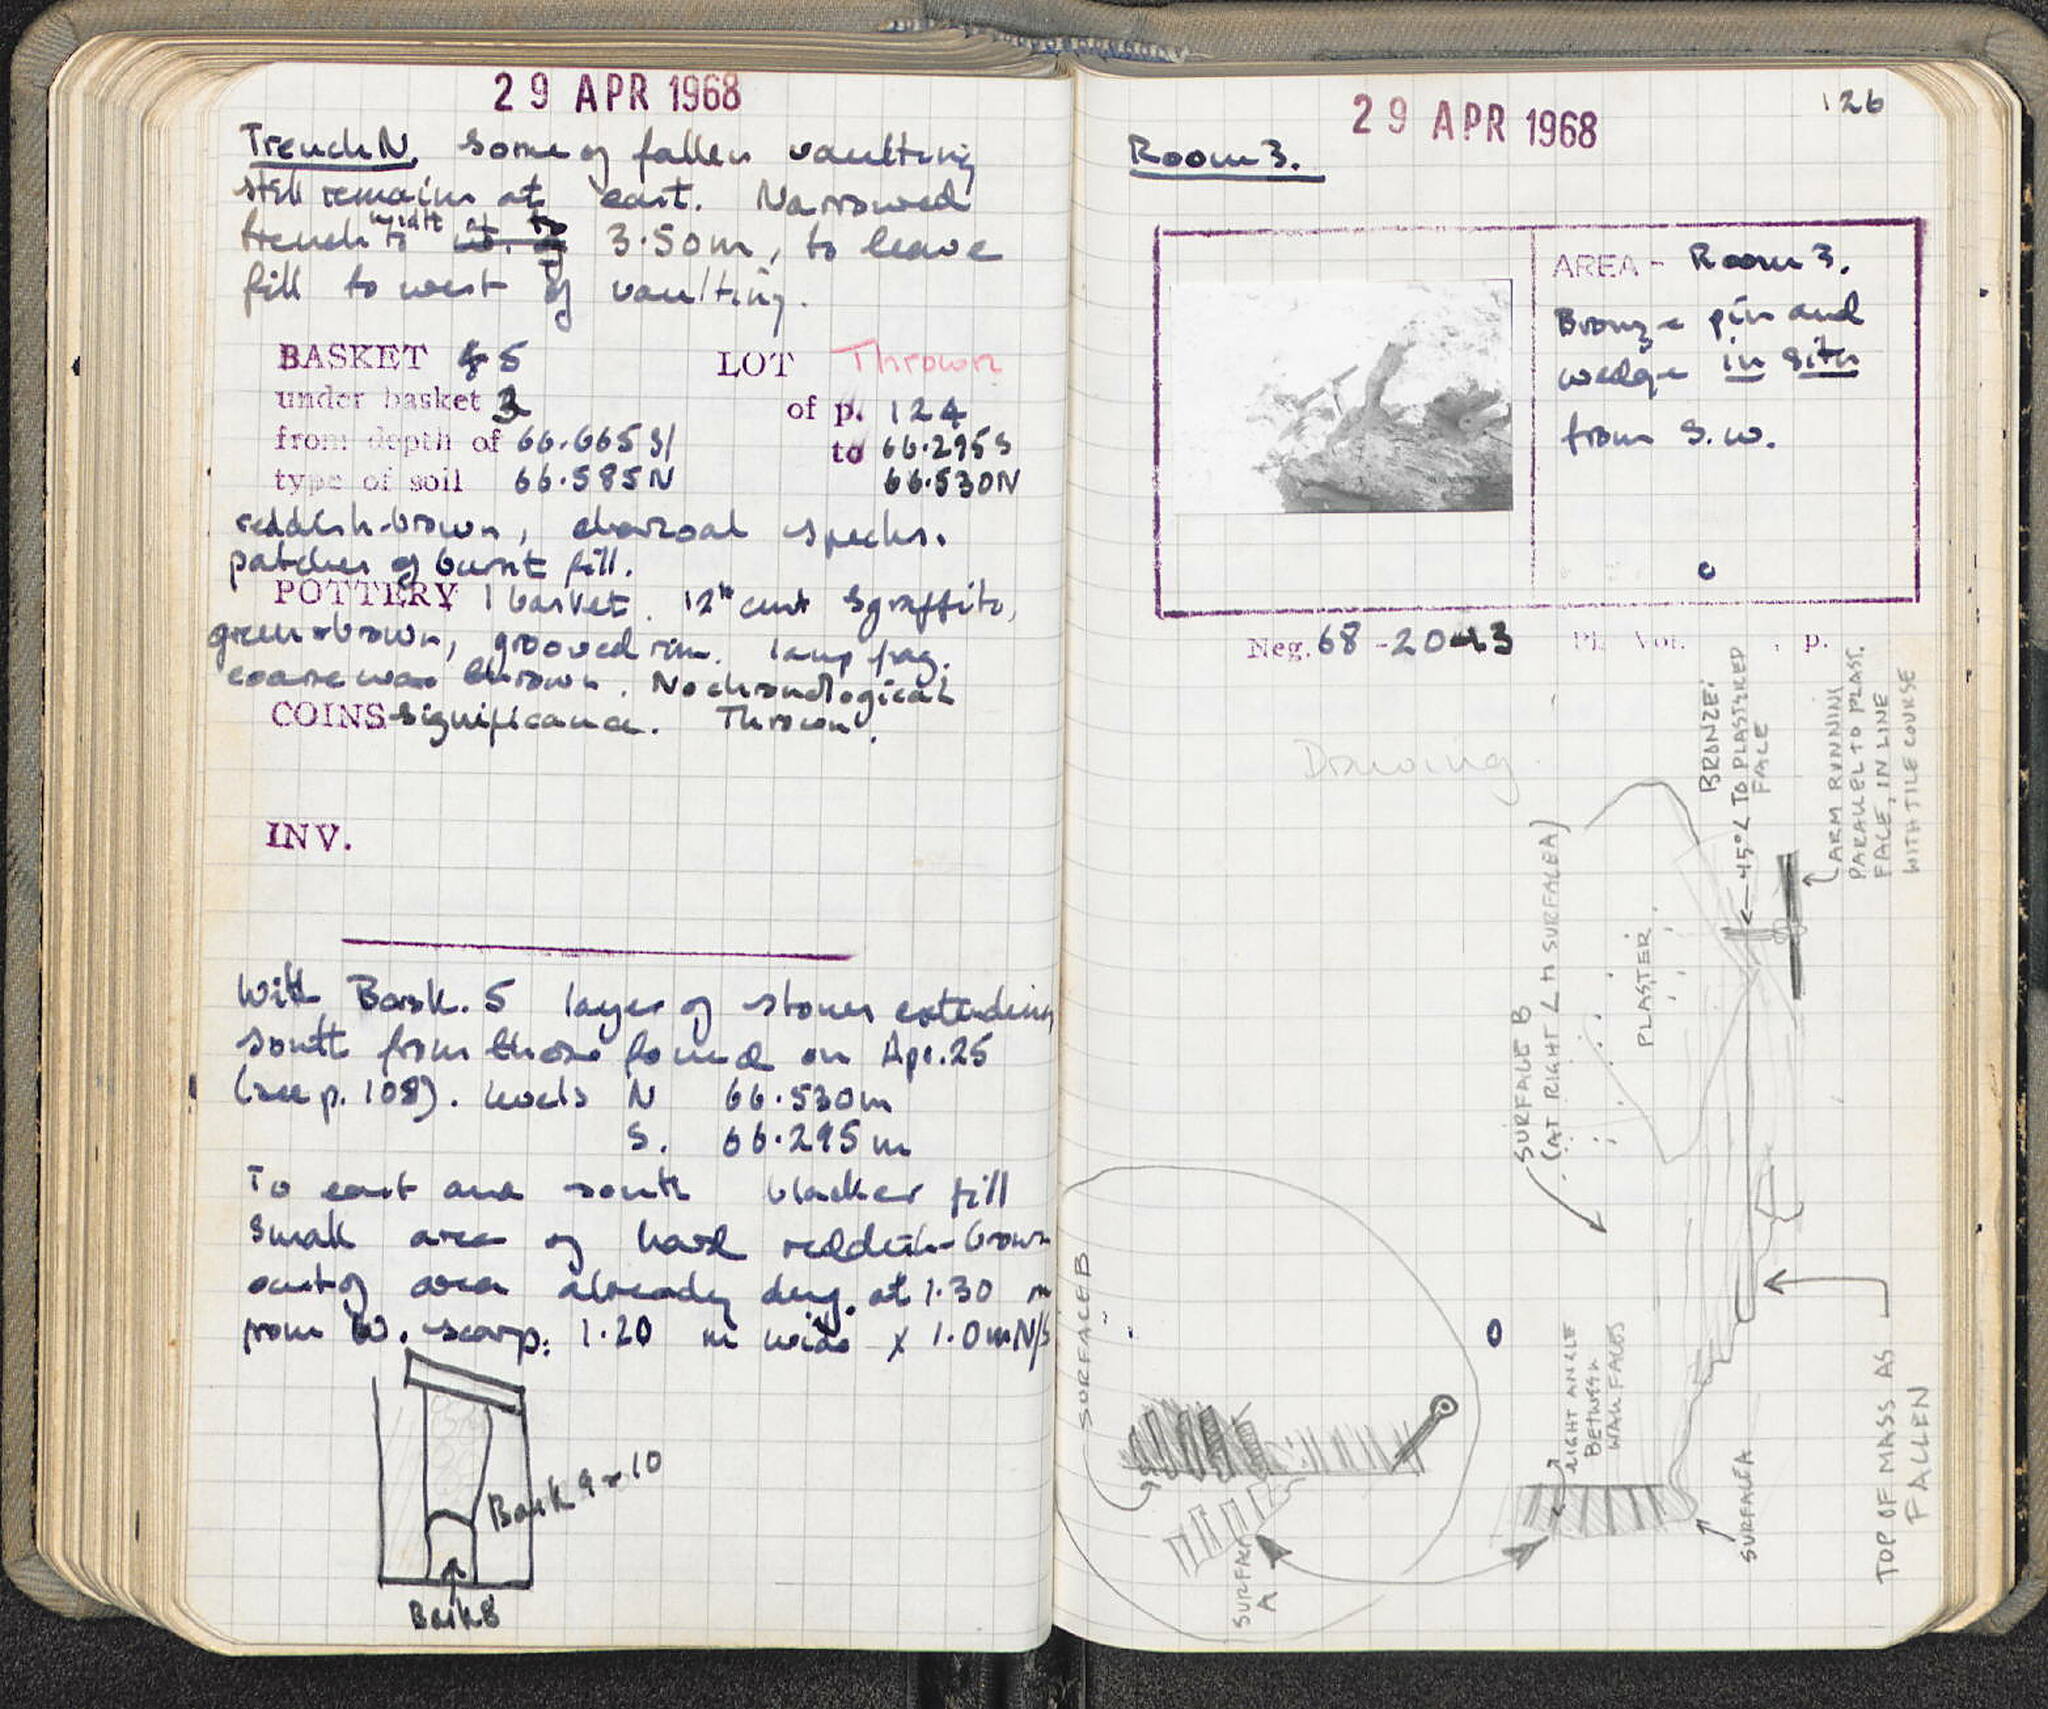 29 APR 1968
Trench N. Some of fallen vaulting
still remains at east. Narrowed
trench width to 3.50m, to leave
fill to west of vaulting.
BASKET 5 LOT Thrown
under basket 3 of p. 124
from depth of 66.665 S/ to 66.295 S
type of soil 66.585 N 66.530 N
reddish-brown, charcoal specks.
patches of burnt fill.
POTTERY 1 basket. 12th cent Sgraffito,
green + brown, grooved rim. lamp frag.
coarse ware thrown. No chronological
COINS significance. Thrown.
INV.
With Bask. 5 layer of stones extending
south from those found on Apr. 25
(see p. 108). levels N 66.530m
S. 66.295m
To east and south blacker fill
Small area of hard reddish-brown
out of area already dug. at 1.30 m
from W. scarp. 1.20 m wide x 1.0m N/S
Bask 9 + 10
Bask 8
29 APR 1968
126
Room 3.
AREA - Room 3.
Bronze pin and
wedge in situ
from S.W.
Neg. 68-20-13 Pl. Vol. , p.
Drawing
BRONZE:
45° ∠ TO PLASTERED
FACE
ARM RUNNING
PARALLEL TO PLAST.
FACE, IN LINE
WITH TILE COURSE
SURFACE B
(AT RIGHT ∠ SURFACE A)
PLASTER
SURFACE B
SURFACE
A
RIGHT ANGLE
BETWEEN
WALL FACES
SURFACE A
TOP OF MASS AS
FALLEN